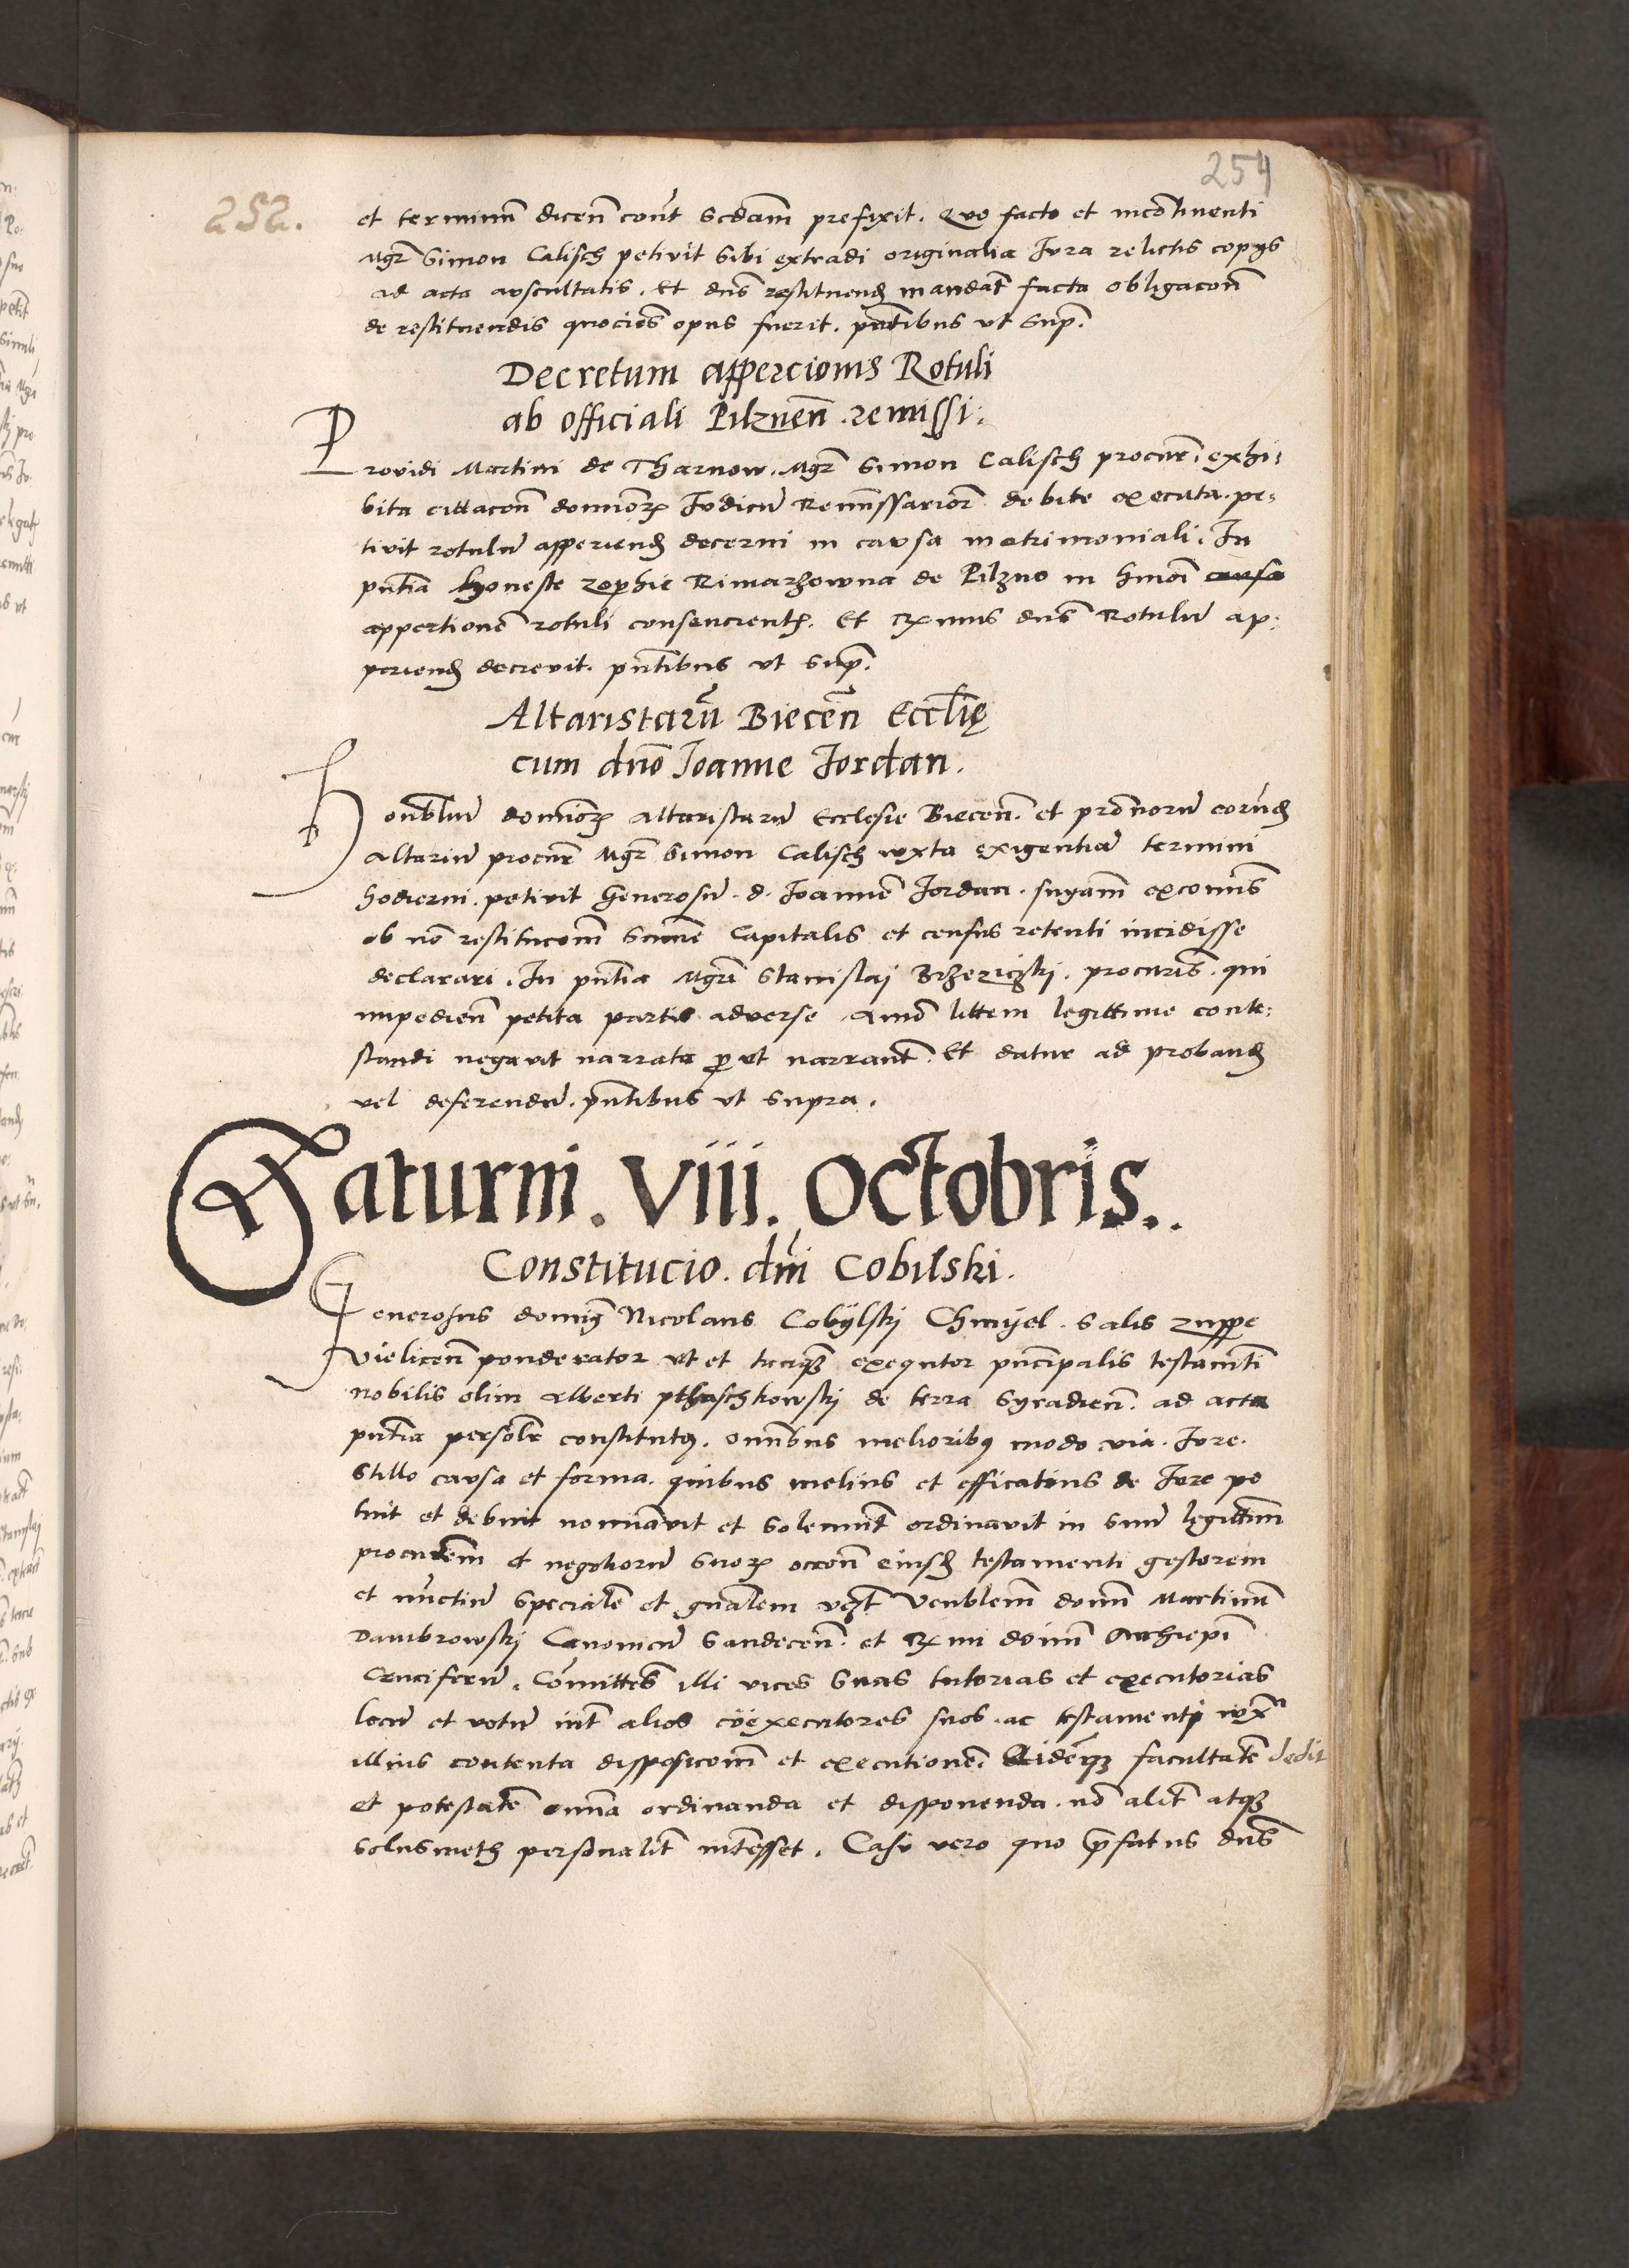 254
252.
et terminũ dicen̄ cont̃ scdam̄ prefixit. Quo facto et incõtinenti
Mgr̃ Simon Calisch petivit sibi extradi originalia Iura relictis copys
ad acta auscultatis. Et dñs restituend mandat̃ facta obligacon̄
de restituendis quocies̃ opus fuerit. pñtibus ut sup̃.
Decretum appercionis Rotuli
ab officiali Pilznen̄. remissi:
Providi Martini de Tharnow. Mgr̃ Simon Calisch procur̃. exhi:
bita cittacon̄ dominor̃ Iudicũ Remissarior̃ debite executa. pe:
tivit rotulũ apperiend decerni in causa matrimoniali. In
pñtia honeste Zophie Rimarzowna de Pilzno in hmõi causa
appertionẽ rotuli consencient̃. Et Rx̃mus dñs Rotulũ ap:
periend decrevit. pñtibus ut sup̃.
Altaristarũ Biecen̄ Ecclię
cum dño Joanne Jordan.
Honbliũ dominor̃ Altaristarũ Ecclesie Biecen̄. et prõnorũ eorũd
Altariũ procur̃ Mgr̃ Simon Calisch iuxta exigentiã termini
hodierni. petivit Generosũ. d. Joannẽ Jordan. sniam̃ excõmis̃
ob nõ restitucom̄ summe Capitalis et census retenti incidisse
declarari. In pñtia Mgr̃i Stanislaj Brzeziczkj. procuris̃. qui
impedien̄ petita partis adverse Aĩmo littem legittime conte:
standi negavit narrata p̱ ut narrant̃. Et datur ad proband
vel deferendũ. pñtibus ut supra.
Saturni. viii. Octobris..
Constitucio. dñi Cobilski.
Generosus domin9 Nicolaus Cobÿlskj Chmÿel. Salis zuppe
Vielicen̄ ponderator ut et tanq̃ exequtor pñcipalis testamñti
nobilis olim Alberti pthaschkowskj de terra Syradien̄. ad acta
pñtia persolr̃ constitut9. omnibus melioribq modo via. Iure.
Stillo causa et forma. quibus melius et efficatius de Iure po
tuit et debuit nominavit et solemnit̃ ordinavit in suũ legittim̃
procurem̄ et negotiorũ suor̃ occon̄ eiusd testamenti gestorem
et nũctiũ specialẽ et gnalem vĩȝt Venblem̄ domin̄ Martinũ
Dambrowskj Canonicũ Sandecen̄. et Rx̃mi domin̄ Archiep̃i
Cruciferũ. Com̃ittes̃ illi vices suas tutorias et executorias
locũ et votũ int̃ alios cöexecutores suos. ac testamenti iux̃
illius contenta disposicom̄ et executionẽ. Eidẽq̃ facultatẽ dedit
et potestatẽ omia ordinanda et disponenda. nõ alit̃ atq̃
solusmeth personalit̃ intẽsset. Casu vero quo p̃fatus dñs